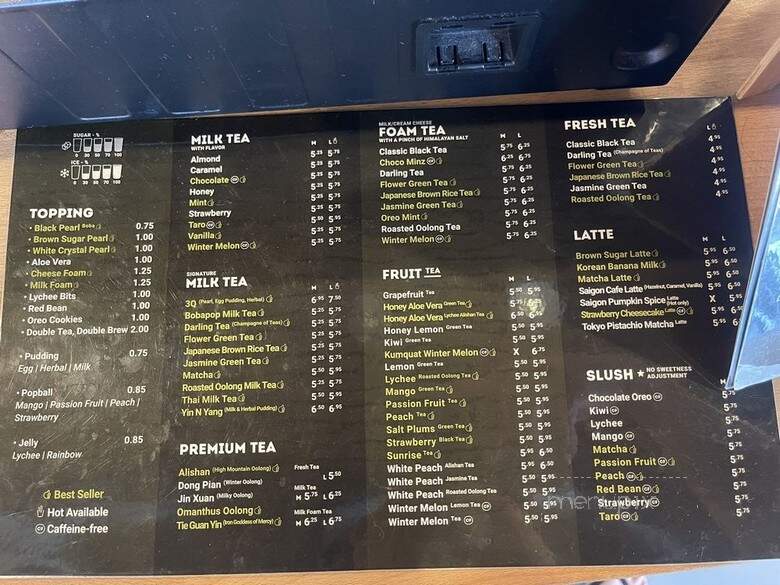 SUGAR - %
0 30 50 70 100
ICE - %
0 30 50 70 100
TOPPING
• Black Pearl Boba 0.75
• Brown Sugar Pearl 1.00
• White Crystal Pearl 1.00
• Aloe Vera 1.00
• Cheese Foam 1.25
• Milk Foam 1.25
• Lychee Bits 1.00
• Red Bean 1.00
• Oreo Cookies 1.00
• Double Tea, Double Brew 2.00
• Pudding 0.75
Egg | Herbal | Milk
• Popball 0.85
Mango | Passion Fruit | Peach |
Strawberry
• Jelly 0.85
Lychee | Rainbow
Best Seller
Hot Available
CF Caffeine-free
MILK TEA M L
WITH FLAVOR
Almond 5.25 5.75
Caramel 5.25 5.75
Chocolate CF 5.25 5.75
Honey 5.25 5.75
Mint 5.25 5.75
Strawberry 5.25 5.75
Taro CF 5.50 5.95
Vanilla 5.25 5.75
Winter Melon CF 5.25 5.75
SIGNATURE
MILK TEA M L
3Q (Pearl, Egg Pudding, Herbal) 6.95 7.50
Bobapop Milk Tea 5.25 5.75
Darling Tea (Champagne of Teas) 5.25 5.75
Flower Green Tea 5.25 5.75
Japanese Brown Rice Tea 5.25 5.75
Jasmine Green Tea 5.25 5.75
Matcha 5.50 5.95
Roasted Oolong Milk Tea 5.25 5.75
Thai Milk Tea 5.50 5.95
Yin N Yang (Milk & Herbal Pudding) 6.50 6.95
PREMIUM TEA
Alishan (High Mountain Oolong)
Dong Pian (Winter Oolong)
Jin Xuan (Milky Oolong)
Omanthus Oolong
Tie Guan Yin (Iron Goddess of Mercy)
Fresh Tea
L 5.50
Milk Tea
M 5.75 L 6.25
Milk Foam Tea
M 6.25 L 6.75
MILK/CREAM CHEESE
FOAM TEA M L
WITH A PINCH OF HIMALAYAN SALT
Classic Black Tea 5.75 6.25
Choco Minz CF 6.25 6.75
Darling Tea 5.75 6.25
Flower Green Tea 5.75 6.25
Japanese Brown Rice Tea 5.75 6.25
Jasmine Green Tea 5.75 6.25
Oreo Mint 5.75 6.25
Roasted Oolong Tea 5.75 6.25
Winter Melon CF 5.75 6.25
FRUIT TEA M L
Grapefruit Tea 5.50 5.95
Honey Aloe Vera Green Tea 5.75
Honey Aloe Vera Lychee Alishan Tea 6.50
Honey Lemon Green Tea 5.50 5.95
Kiwi Green Tea 5.50 5.95
Kumquat Winter Melon CF X 6.75
Lemon Green Tea 5.50 5.95
Lychee Roasted Oolong Tea 5.50 5.95
Mango Green Tea 5.50 5.95
Passion Fruit Tea 5.50 5.95
Peach Tea 5.50 5.95
Salt Plums Green Tea 5.50 5.95
Strawberry Black Tea 5.50 5.95
Sunrise Tea 5.50 5.95
White Peach Alishan Tea 5.95 6.50
White Peach Jasmine Tea 5.50 5.95
White Peach Roasted Oolong Tea 5.50 5.95
Winter Melon Lemon Tea CF 5.50 5.95
Winter Melon Tea CF 5.50 5.95
FRESH TEA L
Classic Black Tea 4.95
Darling Tea (Champagne of Teas) 4.95
Flower Green Tea 4.95
Japanese Brown Rice Tea 4.95
Jasmine Green Tea 4.95
Roasted Oolong Tea 4.95
LATTE M L
Brown Sugar Latte 5.95 6.50
Korean Banana Milk 5.95 6.50
Matcha Latte 5.95 6.50
Saigon Cafe Latte (Hazelnut, Caramel, Vanilla) 5.95 6.50
Saigon Pumpkin Spice Latte (Hot only) X 5.95
Strawberry Cheesecake Latte CF 5.95 6.50
Tokyo Pistachio Matcha Latte 5.95
SLUSH ★ NO SWEETNESS
ADJUSTMENT
Chocolate Oreo CF 5.75
Kiwi CF 5.75
Lychee 5.75
Mango CF 5.75
Matcha 5.75
Passion Fruit CF 5.75
Peach CF 5.75
Red Bean CF 5.75
Strawberry CF 5.75
Taro CF 5.75